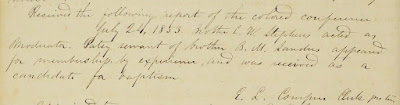 Received the following report of the colored conference
July 24, 1853. Brother E. W. Stephens acted as
Moderator. Patsy servant of brother B. M. Sanders appeared
for membership by experience, and was received as a
candidate for baptism.
E. L. Compere Clerk pro tem